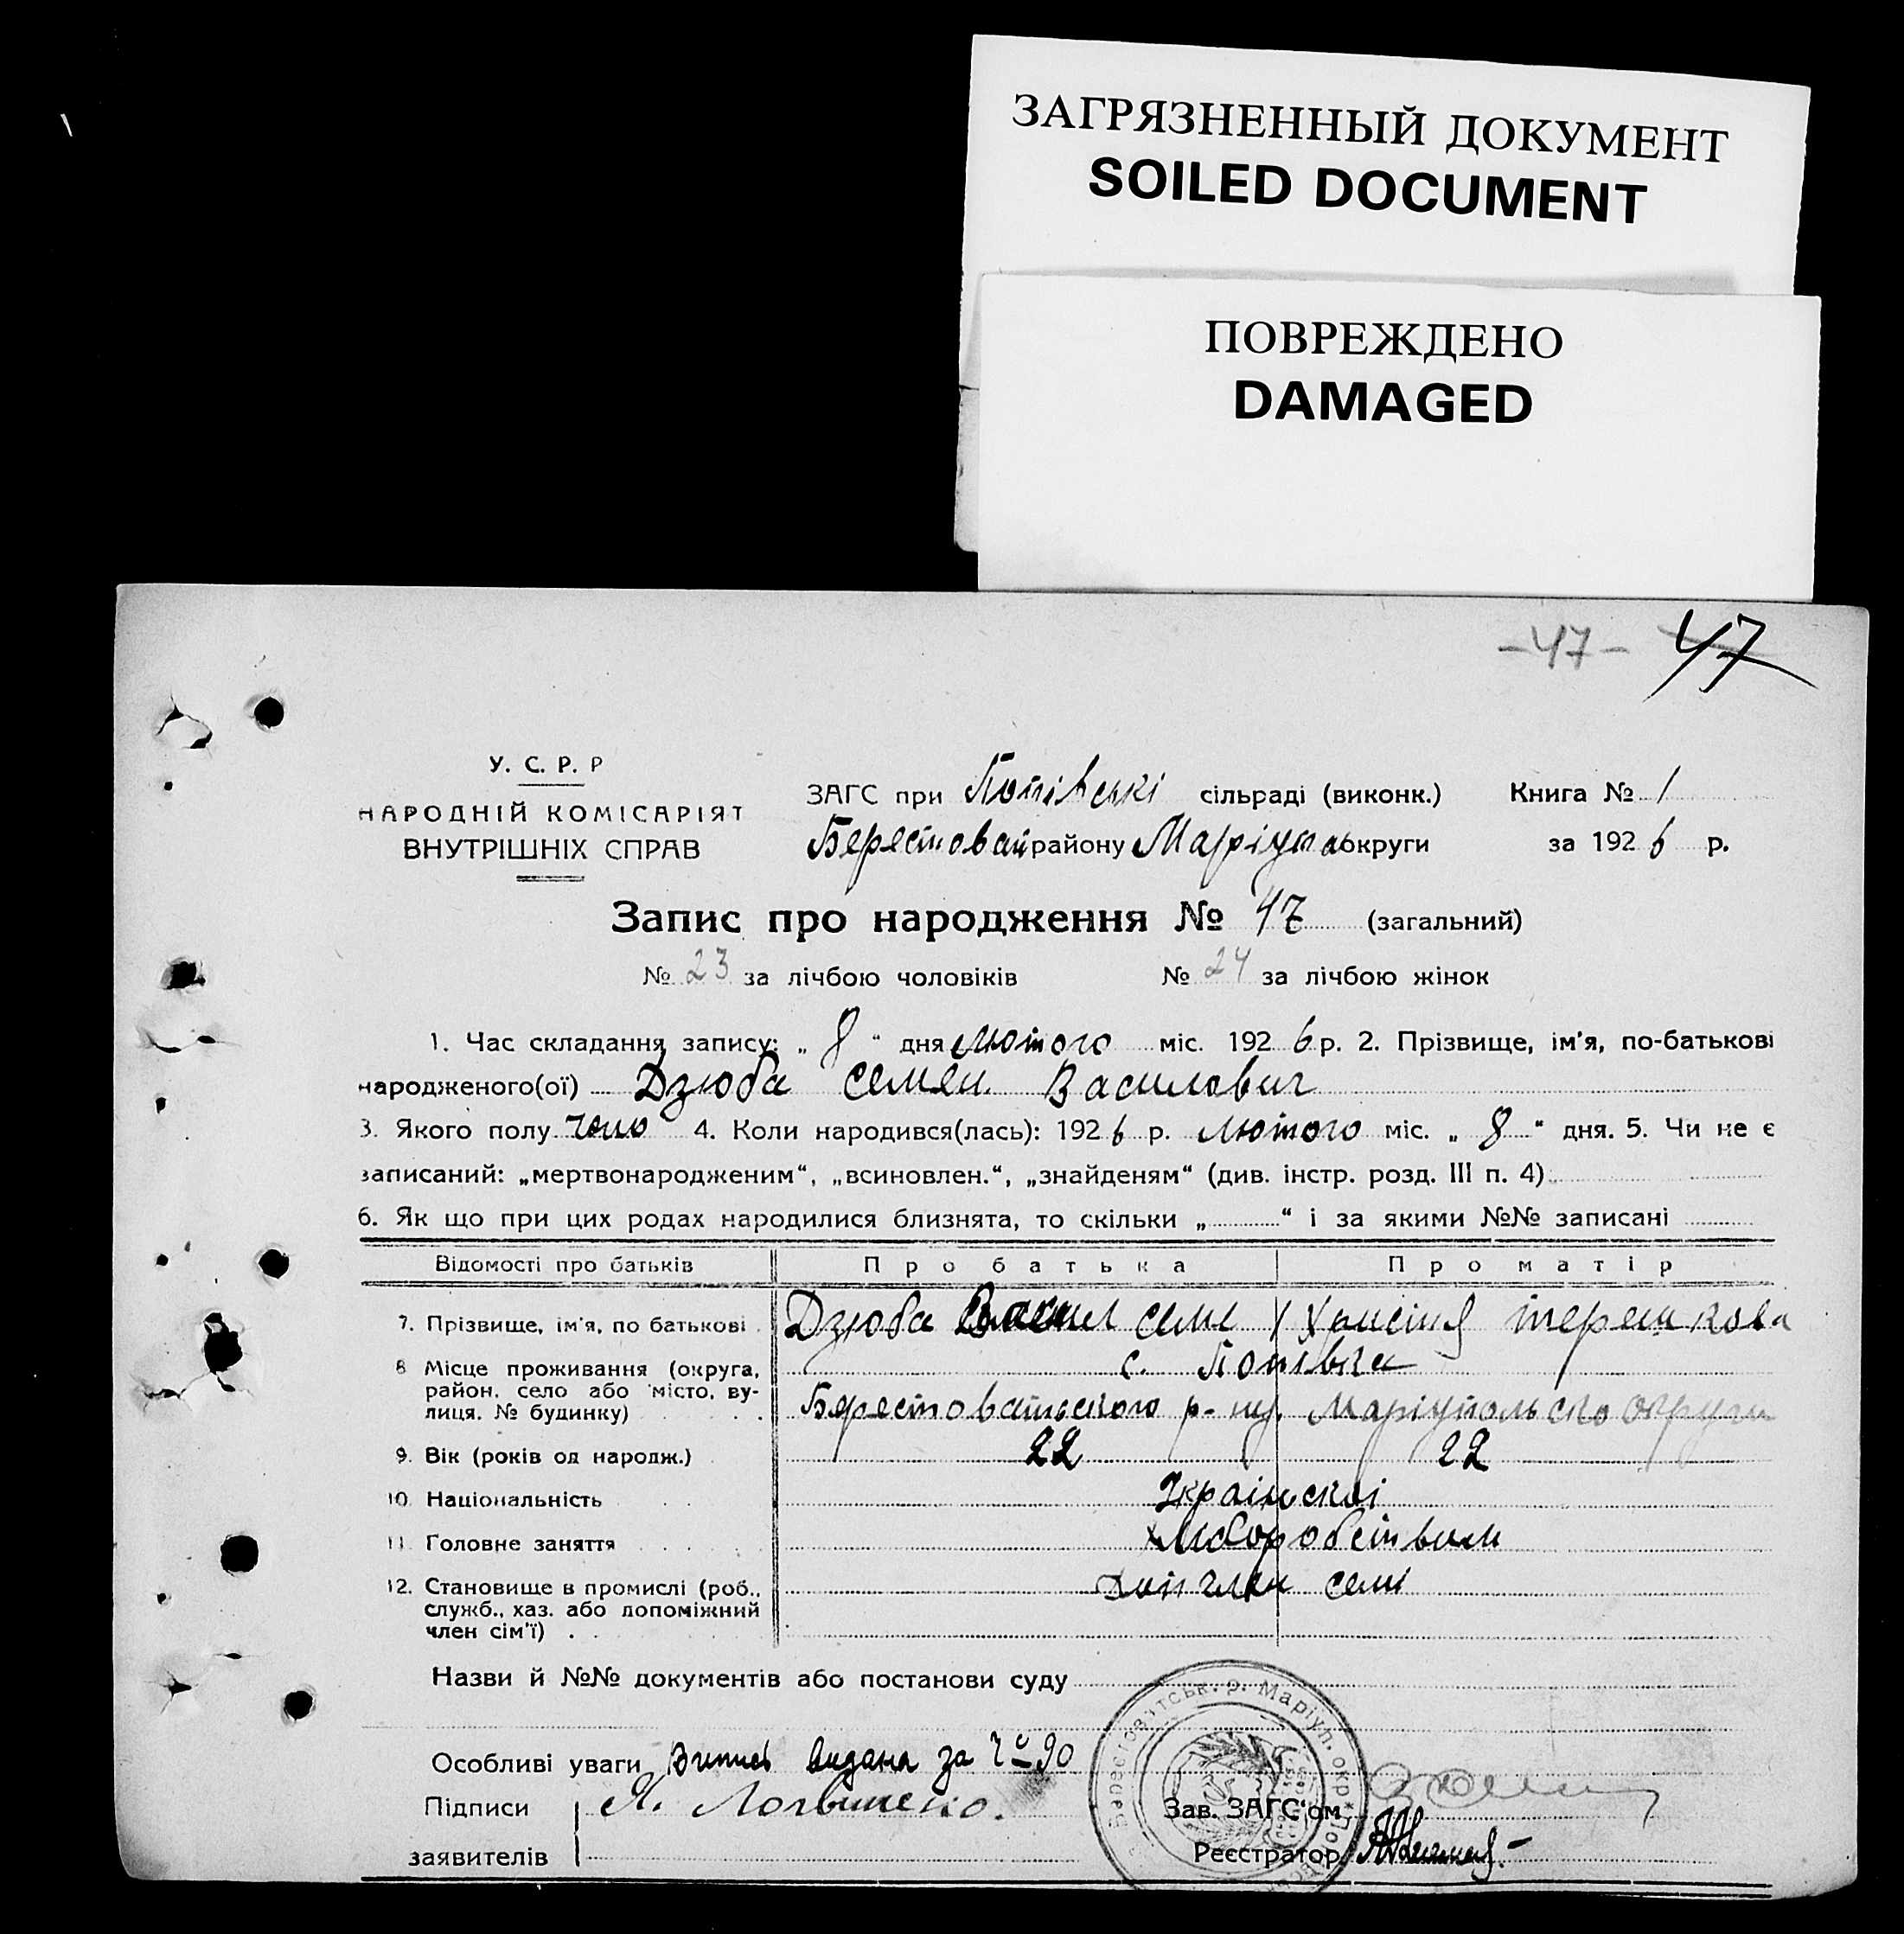 ЗАГРЯЗНЕННЫЙ ДОКУМЕНТ
SOILED DOCUMENT
ПОВРЕЖДЕНО
DAMAGED
-47- 47
У. С. Р. Р
НАРОДНІЙ КОМІСАРІЯТ
ВНУТРІШНІХ СПРАВ
ЗАГС при Попівські сільраді (виконк.) Книга № 1
району округи за 1926 р.
Запис про народження № 47 (загальний)
№ 23 за лічбою чоловіків № 24 за лічбою жінок
1. Час складання запису: „ 8 “ дня лютого міс. 1926 р. 2. Прізвище, ім'я, по-батькові
народженого(ої) Дзюба Семен Василович
3. Якого полу чоло 4. Коли народився(лась): 1926 р. лютого міс. „ 8 “ дня. 5. Чи не є
записаний: „мертвонародженим“, „всиновлен.“, „знайденям“ (див. інстр. розд. III п. 4)
6. Як що при цих родах народилися близнята, то скільки „ “ і за якими №№ записані
Відомості про батьків Про батька Про матір
7. Прізвище, ім'я, по батькові Дзюба семе
8 Місце проживання (округа, с. Попівка
район, село або місто, ву-
лиця, № будинку)
9. Вік (років од народж.) 22 22
10. Національність
11. Головне заняття
12. Становище в промислі (роб., Доп член семі
служб., хаз. або допоміжний
член сім'ї)
Назви й №№ документів або постанови суду
Особливі уваги видана за
Підписи Я. Логвиненко.
Зав. ЗАГС'ом
заявителів Реєстратор